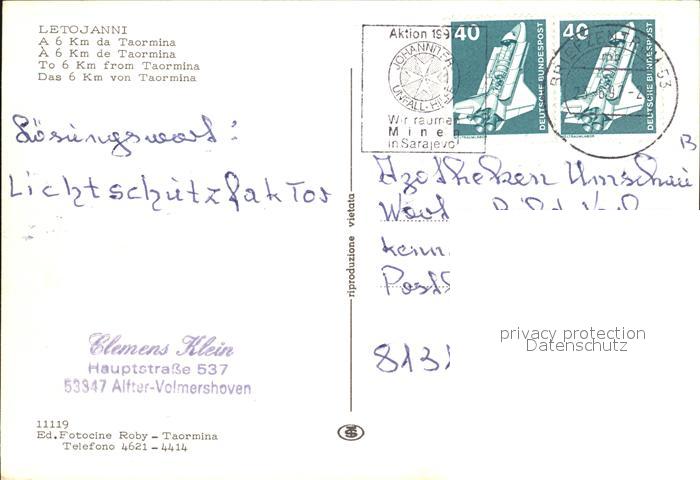 LETOJANNI
A 6 Km da Taormina
À 6 Km de Taormina
To 6 Km from Taormina
Das 6 Km von Taormina
Lösungswort:
Lichtschützfaktor
Clemens Klein
Hauptstraße 537
53347 Alfter-Volmershoven
11119
Ed. Fotocine Roby - Taormina
Telefono 4621 - 4414
riproduzione vietata
Aktion 199
JOHANNITER
UNFALL-HILFE
Wir räumen
Minen
in Sarajevo
40
DEUTSCHE BUNDESPOST
WELTRAUMLABOR
40
DEUTSCHE BUNDESPOST
WELTRAUMLABOR
BRIEFZENTRUM 53
Apotheken Umschau
B
Wort
kenn.
Post
813
privacy protection
Datenschutz